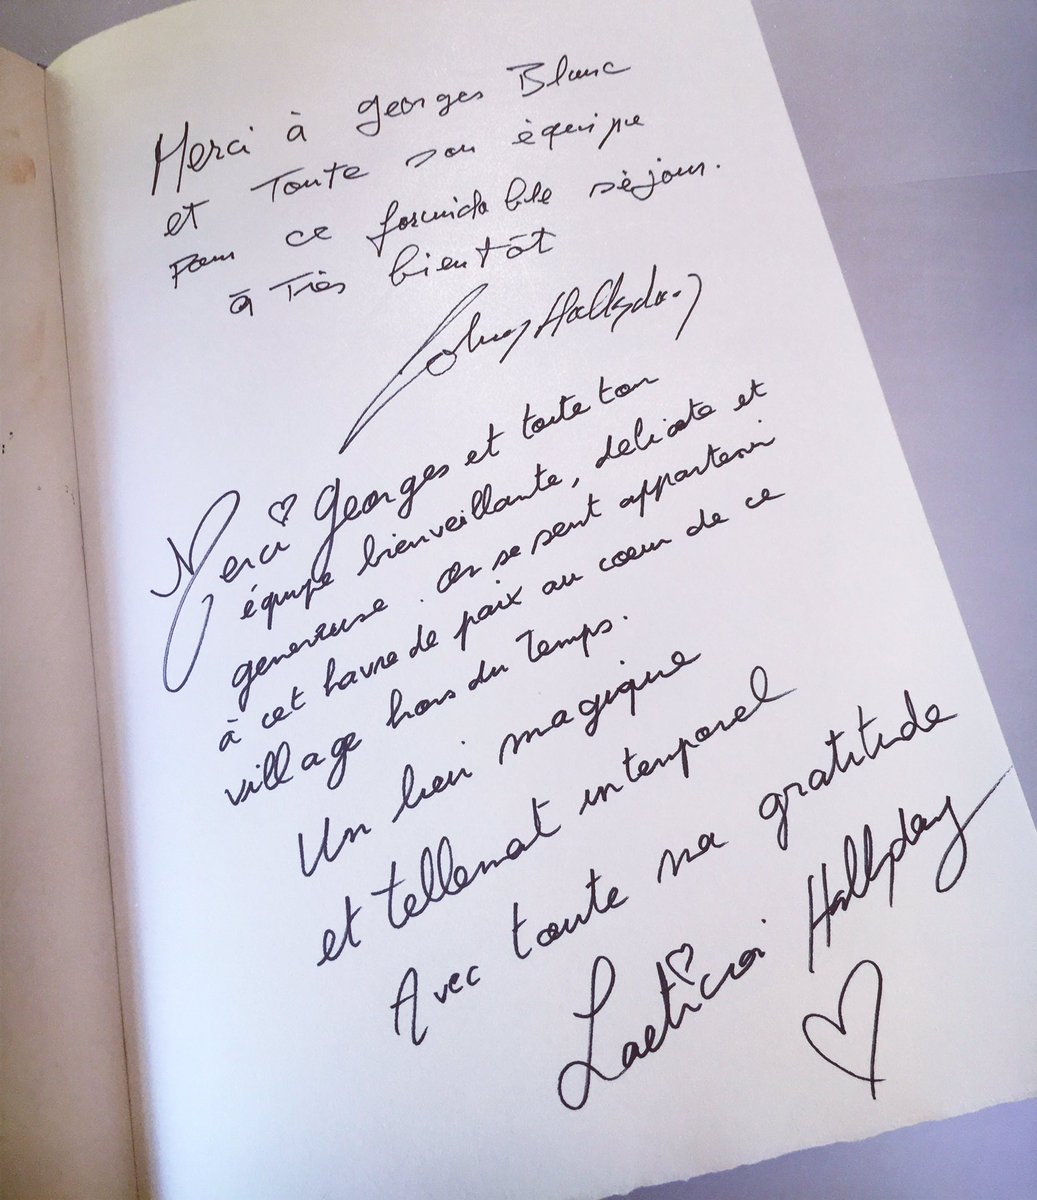 Merci à georges Blanc
et Toute son équipe
pour ce formidable séjour.
à Très bientôt
Johnny Hallyday
Merci Georges et toute ton
équipe bienveillante, delicate et
genereuse. On se sent appartenir
à cet havre de paix au coeur de ce
village hors du Temps.
Un lieu magique
et tellement intemporel
Avec toute ma gratitude
Laeticia Hallyday